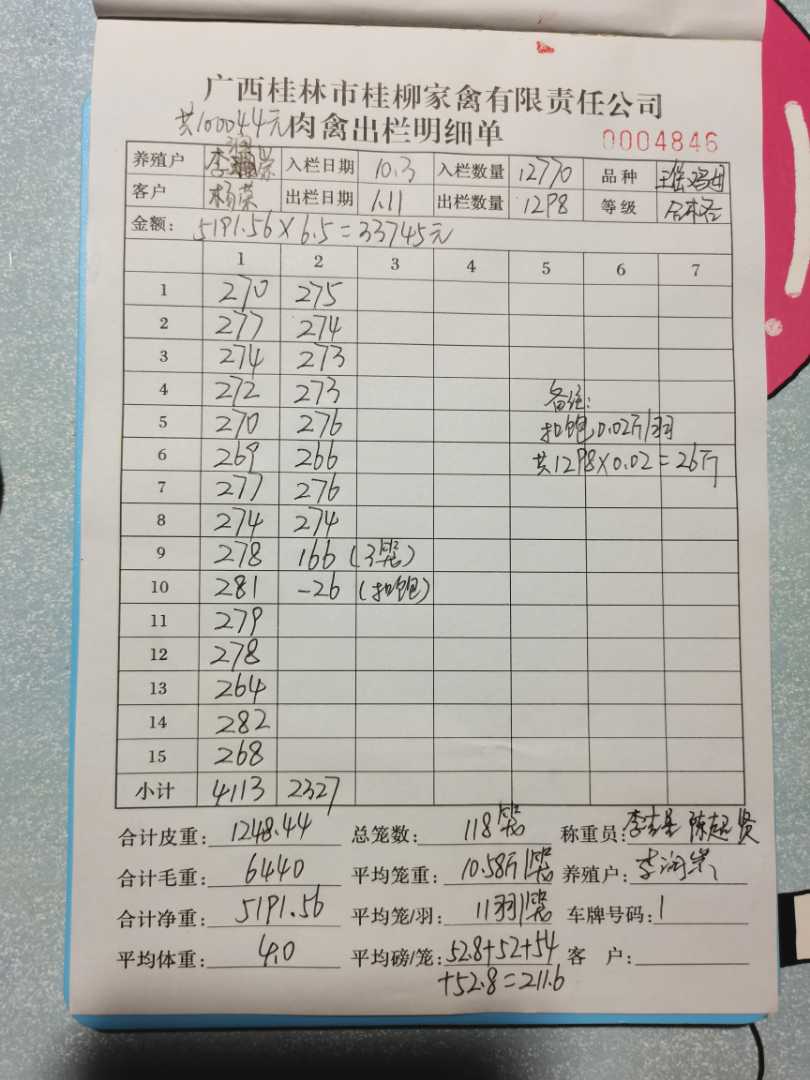 广西桂林市桂柳家禽有限责任公司
共100044元 肉禽出栏明细单 0004846
养殖户 李润荣 入栏日期 10.3 入栏数量 12770 品种
客户 杨荣 出栏日期 1.11 出栏数量 1298 等级 合格
金额: 5191.56×6.5=33745元
1 2 3 4 5 6 7
1 270 275
2 277 274
3 274 273
4 272 273 备注:
5 270 276 扣饱0.02斤/羽
6 269 266 共1298×0.02=26斤
7 277 276
8 274 274
9 278 166 (3笼)
10 281 -26 (扣饱)
11 279
12 278
13 264
14 282
15 268
小计 4113 2327
合计皮重: 1248.44 总笼数: 118笼 称重员: 陈超贤
合计毛重: 6440 平均笼重: 10.58斤/笼 养殖户: 李润荣
合计净重: 5191.56 平均笼/羽: 11羽/笼 车牌号码: 1
平均体重: 4.0 平均磅/笼: 52.8+52+54 客 户:
+52.8=211.6